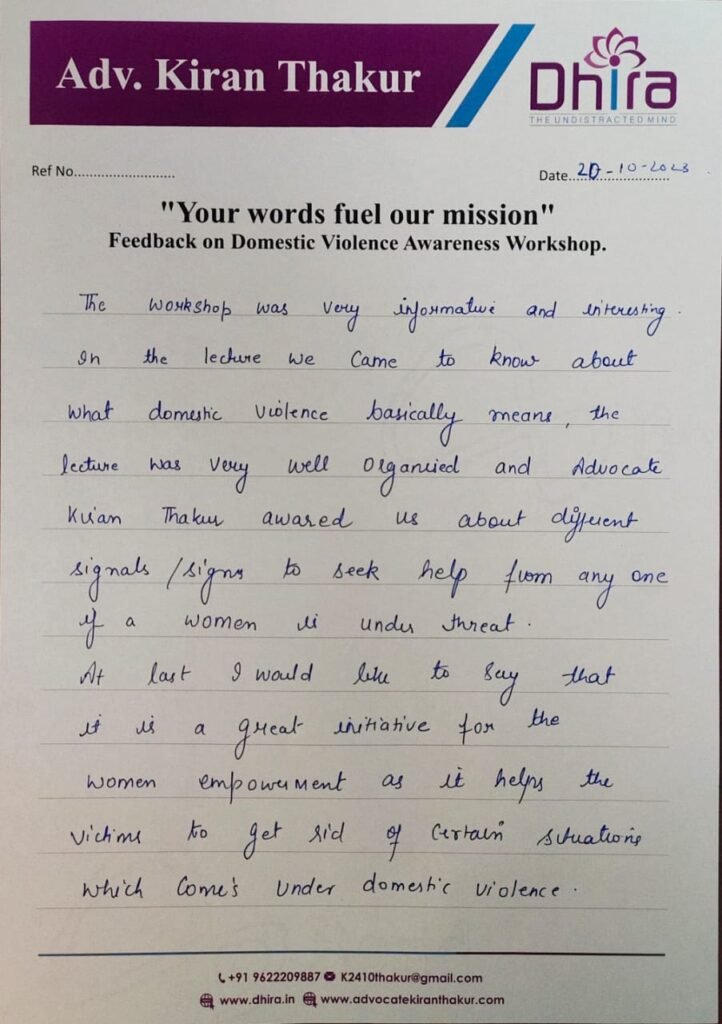 Adv. Kiran Thakur
Dhira
THE UNDISTRACTED MIND
Ref No..........................
Date..20-10-2023
"Your words fuel our mission"
Feedback on Domestic Violence Awareness Workshop.
The workshop was very informative and interesting.
In the lecture we came to know about
what domestic violence basically means, the
lecture was very well Organized and Advocate
Kiran Thakur awared us about different
signals/signs to seek help from any one
if a women is under threat.
At last I would like to say that
it is a great initiative for the
women empowerment as it helps the
victims to get rid of certain situations
which Come's under domestic violence.
+91 9622209887 K2410thakur@gmail.com
www.dhira.in www.advocatekiranthakur.com